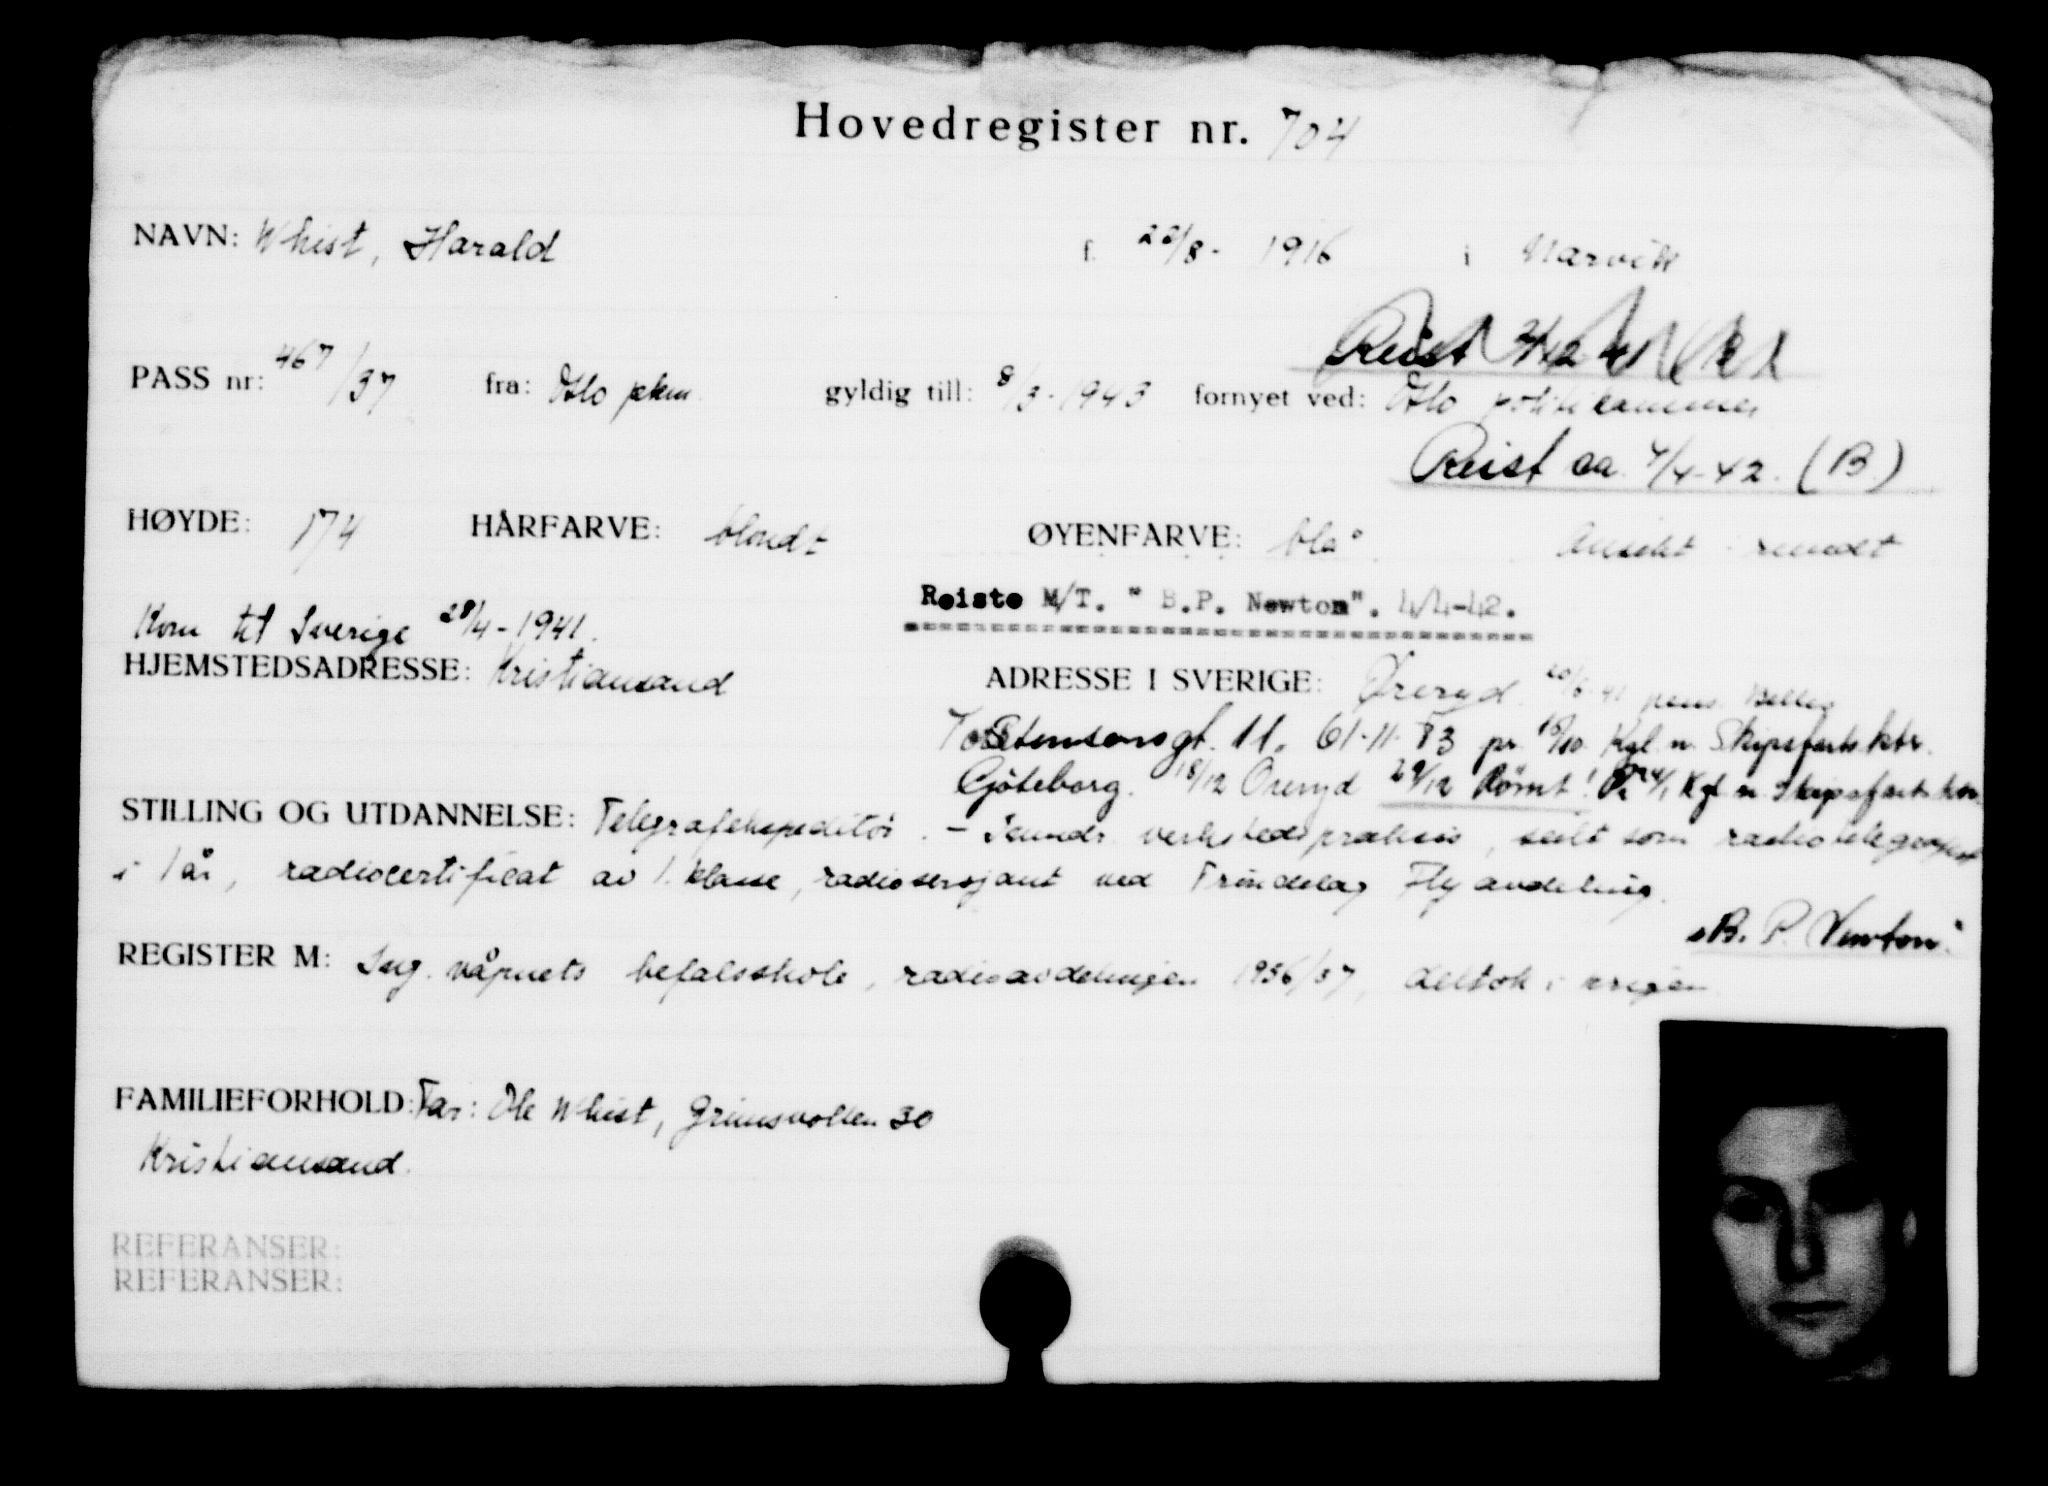 Hovedregister nr. 704
NAVN: Whist, Harald f. 22/8- 1916 i Narvik
Reist
PASS nr: 467/37 fra: Oslo pkm. gyldig till: 8/3-1943 fornyet ved: Oslo politikammer
Reist ca. 4/4-42. (B)
HØYDE: 174 HÅRFARVE: blondt ØYENFARVE: blå Ansikt rundt
Reiste M/T. "B.P. Newton". 4/4-42.
Kom til Sverige 28/4-1941.
HJEMSTEDSADRESSE: Kristiansand ADRESSE I SVERIGE: Øreryd. pens.
Torstensonsgt. 11. 61-11-83 pr. 10/10 Kgl. n. Skipsfartsktr.
Göteborg. 18/12 Öreryd 29/12 Rømt! Kgl n Skipsfartsktr.
STILLING OG UTDANNELSE: Telegrafekspeditør. - verkstedspraksis, seilt som radiotelegrafist
i 1 år, radiocertificat av 1. klasse, radiosersjant ved Trøndelag Flyavdeling.
"B. P. Newton"
REGISTER M: Ing. våpnets befalsskole, radioavdelingen 1936/37, deltok i krigen
FAMILIEFORHOLD: Far: Ole Whist, Grimsvollen 30
Kristiansand.
REFERANSER:
REFERANSER: